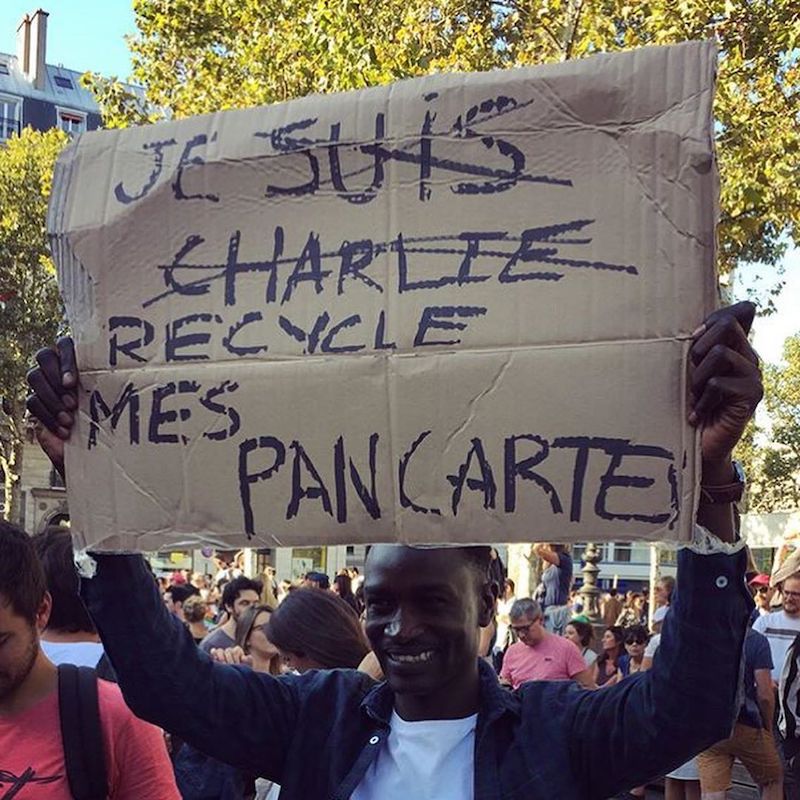 JE SUIS
CHARLIE
RECYCLE
MES
PANCARTES